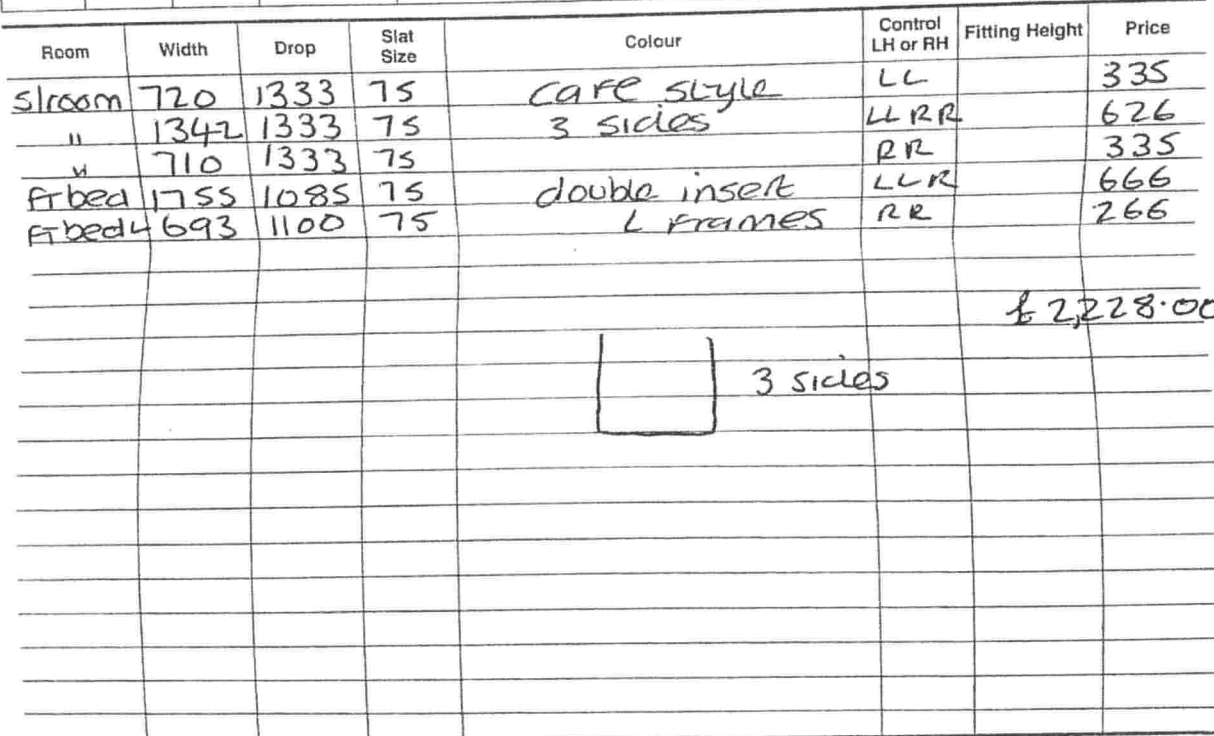 Room Width Drop Slat Size Colour Control LH or RH Fitting Height Price
S/room 720 1333 75 cafe style LL 335
" 1342 1333 75 3 sides LLRR 626
" 710 1333 75 RR 335
Frbed 1755 1085 75 double insert LLR 666
Frbed4 693 1100 75 L Frames RR 266
£2,228.00
3 sides